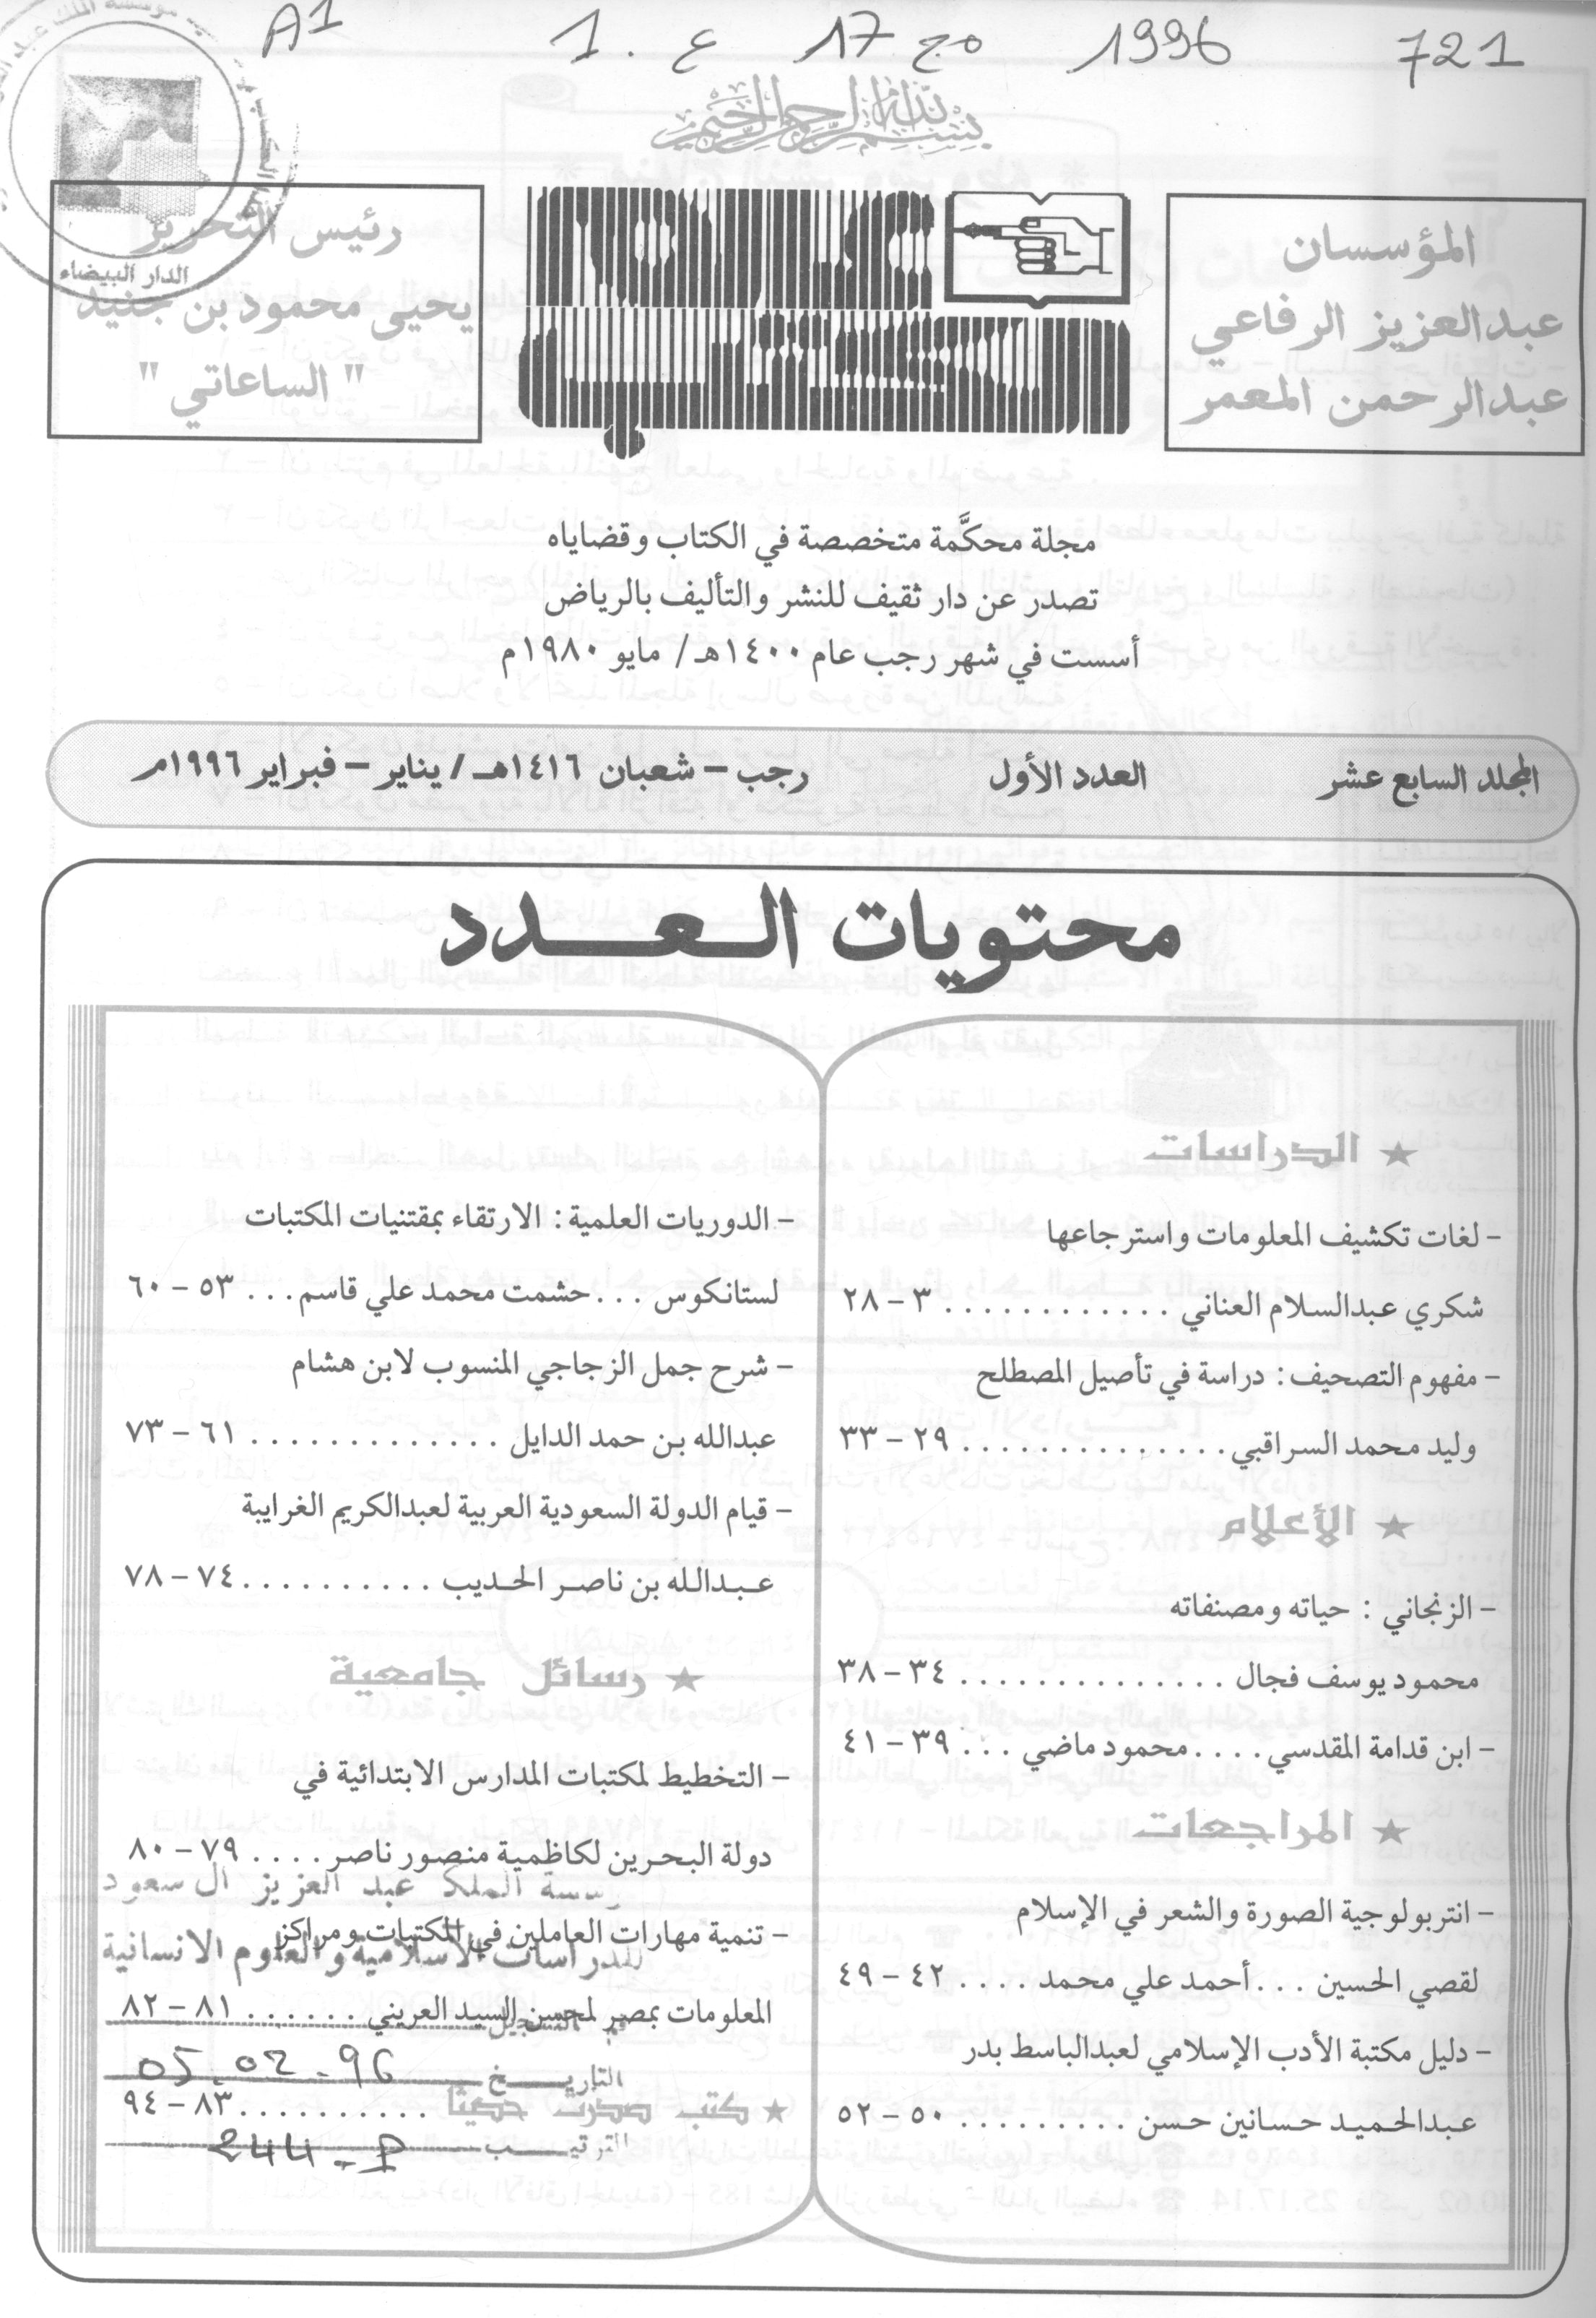 721 1996 مج 17 ع . 1 A1
بسم الله الرحمن الرحيم
المؤسسان
عبدالعزيز الرفاعي
عبدالرحمن المعمر
عالم الكتب
رئيس التحرير
يحيى محمود بن جنيد
" الساعاتي "
الدار البيضاء
مجلة محكَّمة متخصصة في الكتاب وقضاياه
تصدر عن دار ثقيف للنشر والتأليف بالرياض
أسست في شهر رجب عام ١٤٠٠هـ/ مايو ١٩٨٠م
المجلد السابع عشر العدد الأول رجب – شعبان ١٤١٦هـ / يناير – فبراير ١٩٩٦م
محتويات العـــدد
★ الدراسات
– لغات تكشيف المعلومات واسترجاعها
شكري عبدالسلام العناني . . . . . . . . . . . . ٣ – ٢٨
– مفهوم التصحيف : دراسة في تأصيل المصطلح
وليد محمد السراقبي . . . . . . . . . . . . . . ٢٩ – ٣٣
★ الأعلام
– الزنجاني : حياته ومصنفاته
محمود يوسف فجال . . . . . . . . . . . . . . ٣٤ – ٣٨
– ابن قدامة المقدسي . . . . محمود ماضي . . . ٣٩ – ٤١
★ المراجعات
– انتربولوجية الصورة والشعر في الإسلام
لقصي الحسين . . . أحمد علي محمد . . . . ٤٢ – ٤٩
– دليل مكتبة الأدب الإسلامي لعبدالباسط بدر
عبدالحميد حسانين حسن . . . . . . . . . . ٥٠ – ٥٢
– الدوريات العلمية : الارتقاء بمقتنيات المكتبات
لستانكوس . . . حشمت محمد علي قاسم . . . ٥٣ – ٦٠
– شرح جمل الزجاجي المنسوب لابن هشام
عبدالله بن حمد الدايل . . . . . . . . . . . . . ٦١ – ٧٣
– قيام الدولة السعودية العربية لعبدالكريم الغرايبة
عبدالله بن ناصر الحديب . . . . . . . . . . ٧٤ – ٧٨
★ رسائل جامعية
– التخطيط لمكتبات المدارس الابتدائية في
دولة البحرين لكاظمية منصور ناصر . . . . ٧٩ – ٨٠
سسة الملك عبد العزيز آل سعود
– تنمية مهارات العاملين في المكتبات ومراكز
للدراسات الاسلامية والعلوم الانسانية
المعلومات بمصر لمحسن السيد العريني . . . . . . ٨١ – ٨٢
التاريـــخ 05.02.96
★ كتب صدرت حديثا . . . . . . . . . . ٨٣ – ٩٤
الترتيـــب